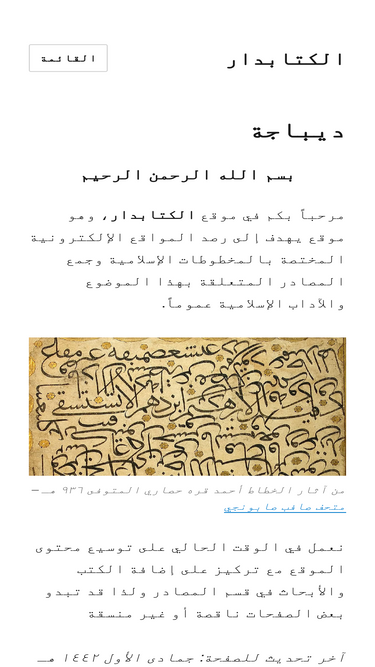 الكتابدار
القائمة
ديباجة
بسم الله الرحمن الرحيم
مرحباً بكم في موقع الكتابدار، وهو
موقع يهدف إلى رصد المواقع الإلكترونية
المختصة بالمخطوطات الإسلامية وجمع
المصادر المتعلقة بهذا الموضوع
والآداب الإسلامية عموماً.
من آثار الخطاط أحمد قره حصاري المتوفى ٩٣٦ هـ —
متحف صاقب صابونجي
نعمل في الوقت الحالي على توسيع محتوى
الموقع مع تركيز على إضافة الكتب
والأبحاث في قسم المصادر ولذا قد تبدو
بعض الصفحات ناقصة أو غير منسقة
آخر تحديث للصفحة: جمادى الأول ١٤٤٢ هـ